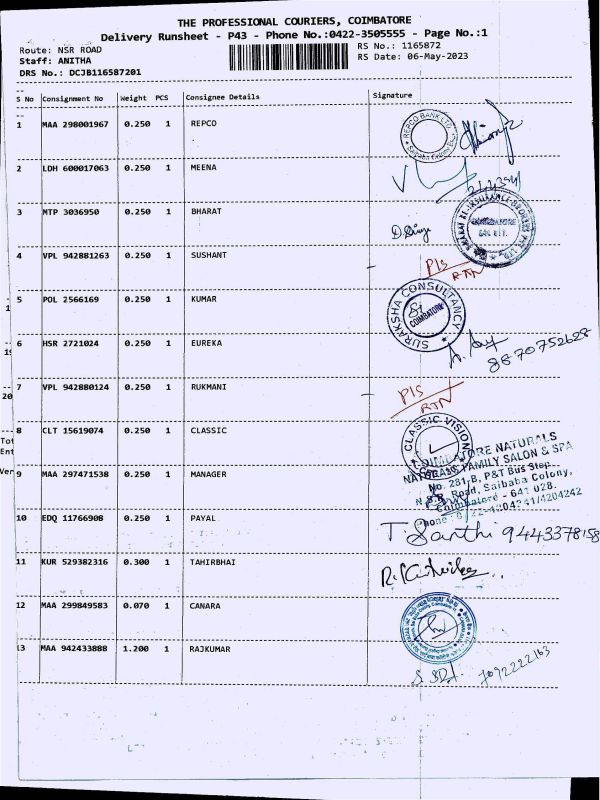 THE PROFESSIONAL COURIERS, COIMBATORE
Delivery Runsheet - P43 - Phone No.:0422-3505555 - Page No.:1
Route: NSR ROAD
RS No.: 1165872
Staff: ANITHA
RS Date: 06-May-2023
DRS No.: DCJB116587201
S No Consignment No Weight PCS Consignee Details Signature
1 MAA 298001967 0.250 1 REPCO
REPCO BANK LTD.
2 LDH 600017063 0.250 1 MEENA
3 MTP 3036950 0.250 1 BHARAT
4 VPL 942881263 0.250 1 SUSHANT
P/s
RTN
5 POL 2566169 0.250 1 KUMAR
SURAKSHA CONSULTANCY
COIMBATORE
6 HSR 2721024 0.250 1 EUREKA
8870752628
7 VPL 942880124 0.250 1 RUKMANI
P/s
RTN
8 CLT 15619074 0.250 1 CLASSIC
CLASSIC VISION
COIMBATORE NATURALS
NATURALS FAMILY SALON & SPA
No. 281-B, P&T Bus Stop
9 MAA 297471538 0.250 1 MANAGER
N.S.R. Road, Saibaba Colony,
Coimbatore - 641 028.
10 EDQ 11766908 0.250 1 PAYAL
T. Santhi 9443378158
11 KUR 529382316 0.300 1 TAHIRBHAI
12 MAA 299849583 0.070 1 CANARA
13 MAA 942433888 1.200 1 RAJKUMAR
7092222163